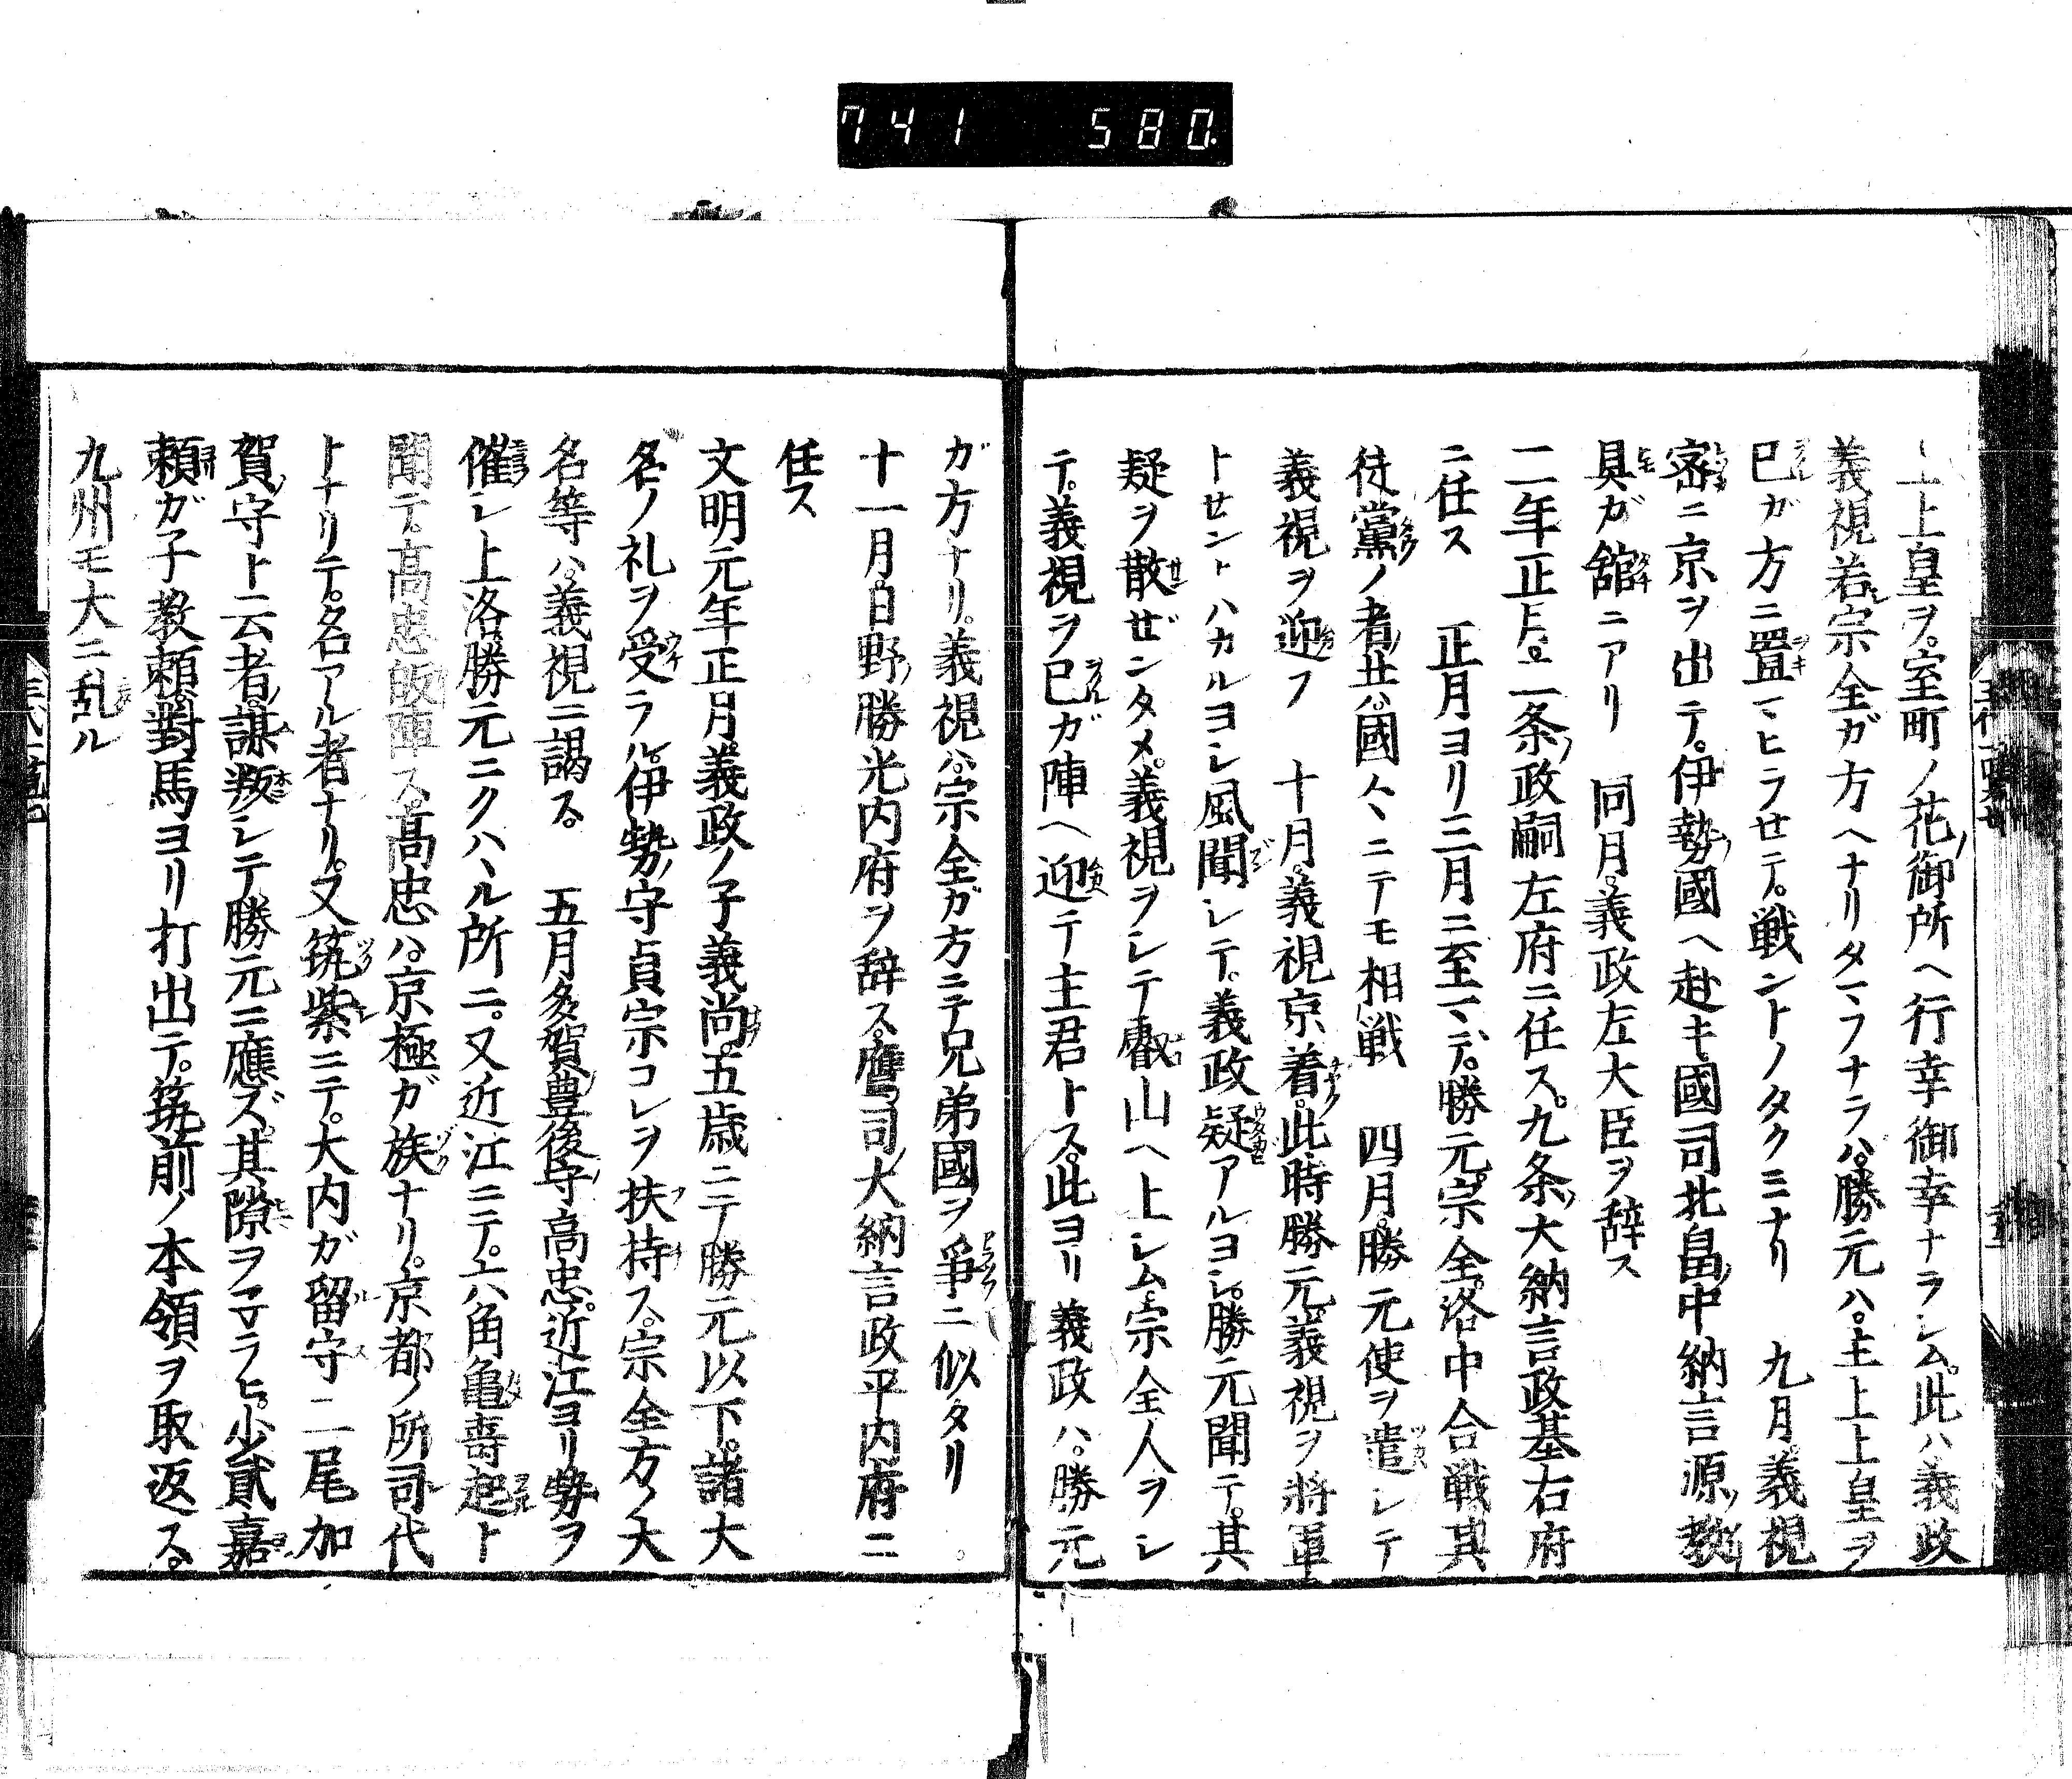 741 580
上上皇ヲ。室町ノ花御所ヘ行幸御幸ナラシム。此ハ義政
義視若宗全ガ方ヘナリタマフナラバ。勝元ハ。主上上皇ヲ
已ガ方ニ置マヒラセテ。戦ントノタクミナリ 九月。義視
密ニ京ヲ出テ。伊勢國ヘ赴キ國司北畠中納言源教
具ガ舘ニアリ 同月。義政左大臣ヲ辞ス
二年正月。二条政嗣左府ニ任ス。九条大納言政基右府
ニ任ス 正月ヨリ三月ニ至マデ。勝元。宗全。洛中合戦其
徒黨ノ者共ハ。國々ニテモ相戦 四月。勝元使ヲ遣シテ
義視ヲ迎フ 十月。義視京着。此時勝元。義視ヲ將軍
トセントハカルヨシ風聞シテ。義政疑アルヨシ。勝元聞テ。其
疑ヲ散ゼンタメ。義視ヲシテ叡山ヘ上シム。宗全人ヲシ
テ。義視ヲ已ガ陣ヘ迎テ主君トス。此ヨリ義政ハ。勝元
ガ方ナリ。義視ハ。宗全ガ方ニテ兄弟國ヲ爭ニ似タリ
十一月。日野勝光内府ヲ辞ス。鷹司大納言政平内府ニ
任ス
文明元年正月。義政ノ子義尚。五歳ニテ勝元以下。諸大
名ノ礼ヲ受ラル。伊勢守貞宗コレヲ扶持ス。宗全方ノ大
名等ハ。義視ニ謁ス。 五月多賀豊後守高忠。近江ヨリ勢ヲ
催シ上洛勝元ニクハヽル所ニ。又近江ニテ。六角亀壽起ト
聞テ。高忠皈陣ス。高忠ハ。京極ガ族ナリ。京都ノ所司代
トナリテ。名アル者ナリ。又筑紫ニテ。大内ガ留守ニ尾加
賀守ト云者。謀叛シテ勝元ニ應ズ。其隙ヲマラヒ。少貳嘉
頼ガ子教頼。對馬ヨリ打出テ。筑前ノ本領ヲ取返ス。
九州モ大ニ乱ル